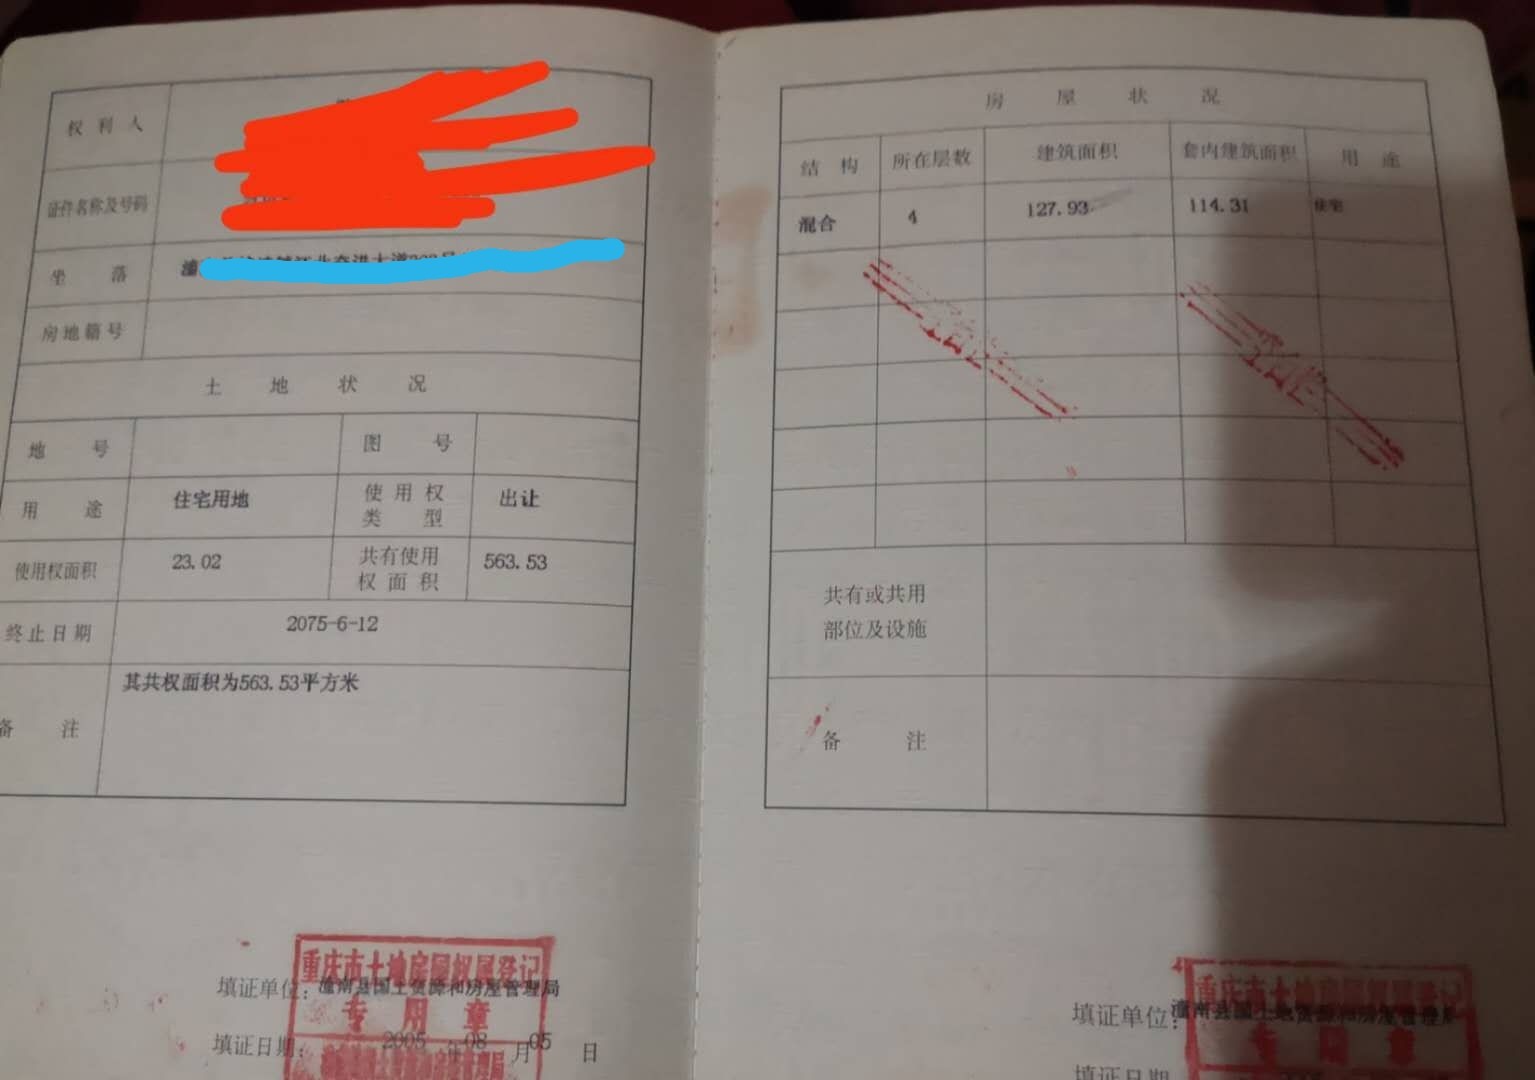 权利人
证件名称及号码
坐落 潼
房地籍号
土地状况
地号 图号
用途 住宅用地 使用权类型 出让
使用权面积 23.02 共有使用权面积 563.53
终止日期 2075-6-12
备注 其共权面积为563.53平方米
重庆市土地房屋权属登记
填证单位：潼南县国土资源和房屋管理局
专用章
填证日期： 2005 年 08 月 05 日
房屋状况
结构 所在层数 建筑面积 套内建筑面积 用途
混合 4 127.93 114.31 住宅
共有或共用
部位及设施
备注
重庆市土地房屋权属登记
填证单位：潼南县国土资源和房屋管理局
专用章
填证日期